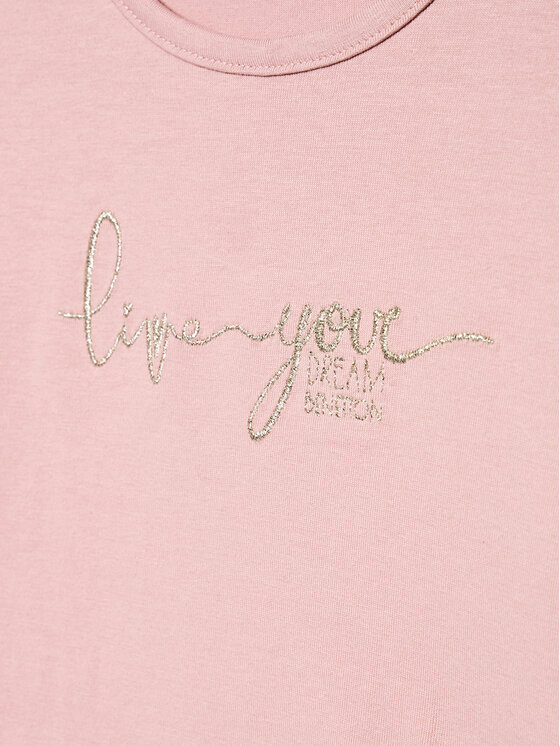 live your
DREAM
BENETTON